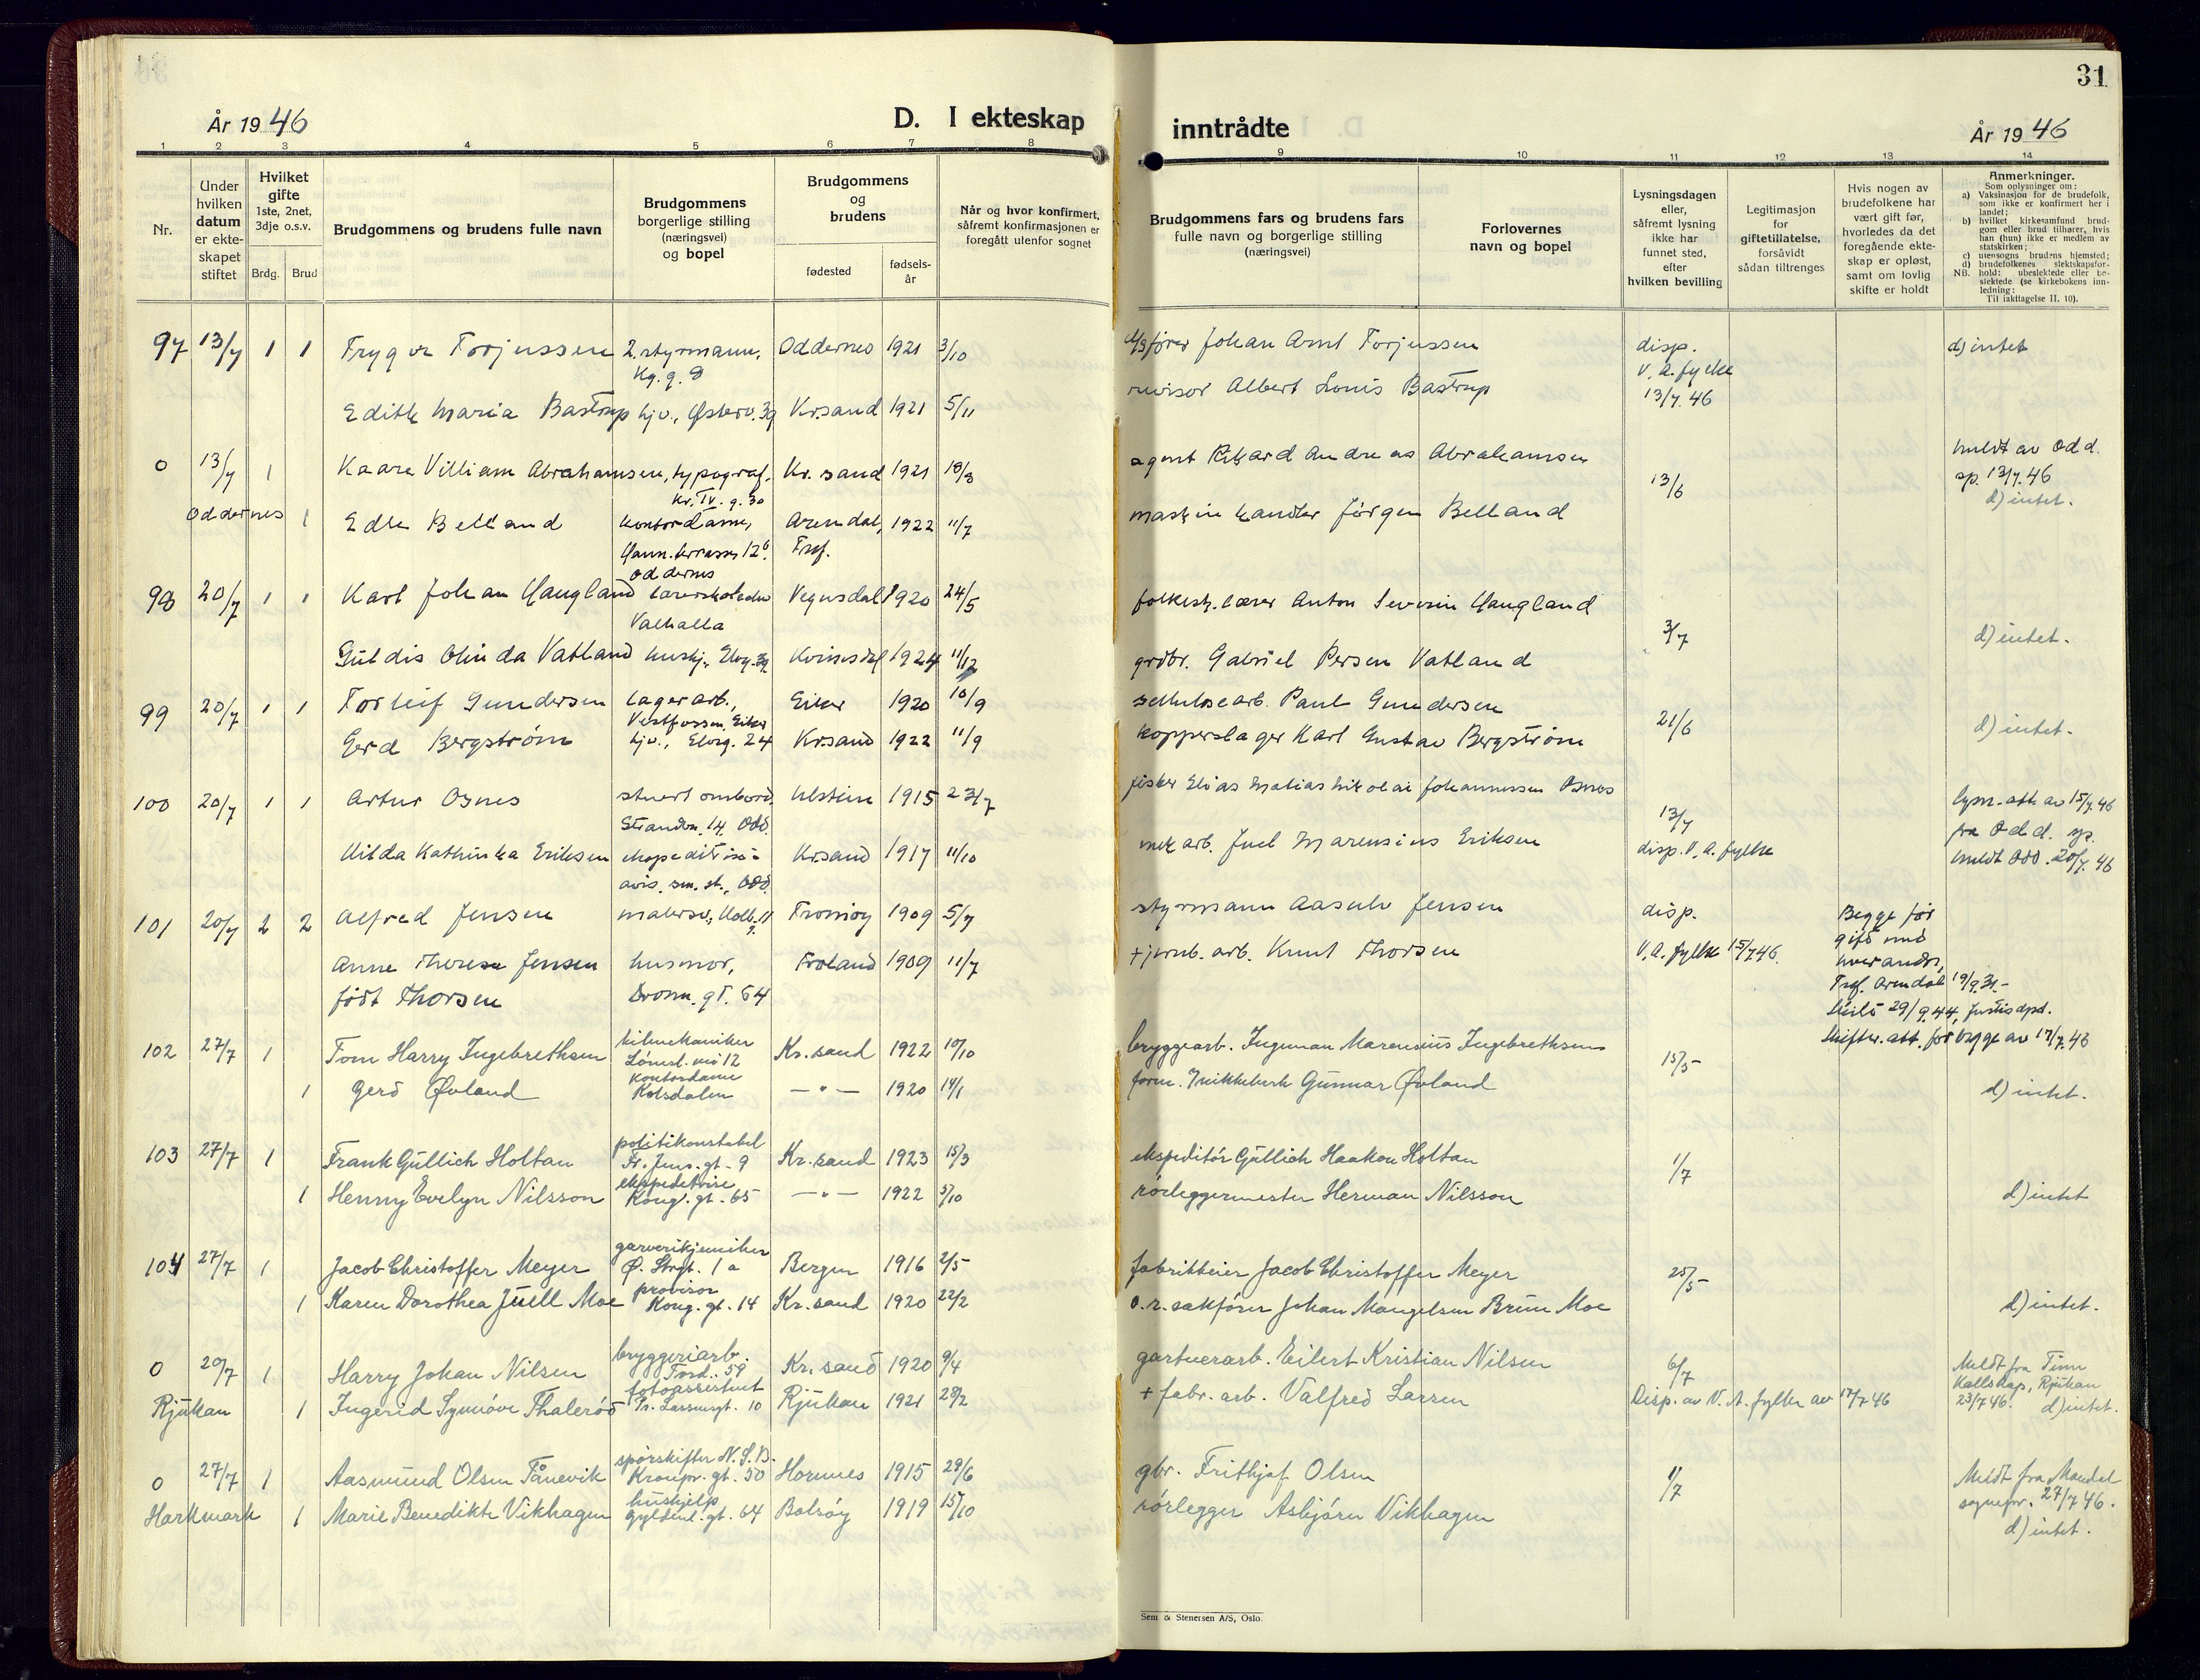 31
År 1946
D. I ekteskap inntrådte
År 1946
1 2 3 4 5 6 7 8 9 10 11 12 13 14
Nr.
Under hvilken datum er ekteskapet stiftet
Hvilket gifte
1ste, 2net, 3dje o.s.v.
Brdg. Brud
Brudgommens og brudens fulle navn
Brudgommens borgerlige stilling (næringsvei) og bopel
Brudgommens og brudens
fødested
fødselsår
Når og hvor konfirmert, såfremt konfirmasjonen er foregått utenfor sognet
Brudgommens fars og brudens fars fulle navn og borgerlige stilling (næringsvei)
Forlovernes navn og bopel
Lysningsdagen eller, såfremt lysning ikke har funnet sted, efter hvilken bevilling
Legitimasjon for giftetillatelse, forsåvidt sådan tiltrenges
Hvis nogen av brudefolkene har vært gift før, hvorledes da det foregående ekteskap er opløst, samt om lovlig skifte er holdt
Anmerkninger.
Som oplysninger om:
a) Vaksinasjon for de brudefolk, som ikke er konfirmert her i landet;
b) hvilket kirkesamfund brudgom eller brud tilhører, hvis han (hun) ikke er medlem av statskirken;
c) utensogns brudens hjemsted;
d) brudefolkenes slektskapsforhold: ubeslektede eller beslektede (se kirkebokens innledning:
NB. Til iakttagelse II, 10).
97 13/7 1 1 Trygve Torjussen 2. styrmann, Kg. g. 8 Oddernes 1921 3/10 Johan Arnt Torjussen disp. V. A. fylke 13/7.46 d) intet
Edith Maria Bastrup hjv., Østerv. 39 Kr.sand 1921 5/11 revisor Albert Louis Bastrup
0 13/7 1 Kaare Villiam Abrahamsen, typograf, Kr. IV. g. 30 Kr. sand 1921 18/3 agent Rikard Andreas Abrahamsen 13/6 meldt av Odd. sp. 13/7.46 d) intet.
Oddernes 1 Edle Belland kontordame, terrasse 12 Oddernes Arendal, Tref. 1922 11/7 maskinhandler Jørgen Belland
98 20/7 1 1 Karl Johan Haugland Valhalla Vegusdal 1920 24/5 folkesk.lærer Anton Severin Haugland 3/7 d) intet.
Guldis Olinda Vatland hushj., Elvg. 39 Kvinesdal 1924 11/12 grdbr. Gabriel Persen Vatland
99 20/7 1 1 Torleif Gundersen lagerarb., Vestfossen, Eiker Eiker 1920 10/9 sellulosearb. Paul Gundersen 21/6 d) intet.
Gerd Bergstrøm hjv., Elveg. 24 Kr.sand 1922 11/9 kopperslager Karl Gustav Bergstrøm
100 20/7 1 1 Artur Osnes stuert ombord. Strandv. 14, Odd. Ulstein 1915 23/7 fisker Elias Matias Nikolai Johannessen Osnes 13/7 disp. V. A. fylke lysn.-att. av 15/7.46 fra Odd. sp. meldt Odd. 20/7.46
Hilda Kathinka Eriksen Kr.sand 1917 11/10 mek arb. Juel Marensius Eriksen
101 20/7 2 2 Alfred Jensen malersv., Holb. g. 11 Tromøy 1909 5/7 styrmann Aasulv Jensen disp. V. A. fylke 15/7.46. Begge før gift med hverandre, Tref. Arendal 19/9.31.- Skilt 29/9.44, Justisdpd. Skiftes.att. for begge av 17/7.46
Anne Therese Jensen født Thorsen husmor, Dronn. gt. 64 Froland 1909 11/7 + jernb. arb. Knut Thorsen
102 27/7 1 Tom Harry Ingebrethsen bilmekaniker 12 Kr. sand 1922 10/10 bryggearb. Ingeman Marensius Ingebrethsen 15/5 d) intet.
1 Gerd Øvland kontordame Kolsdalen —"— 1920 14/1 form. Gunnar Øvland
103 27/7 1 Frank Güllich Holtan politikonstabel Fr. Jens. gt. 9 Kr. sand 1923 15/3 ekspeditør Güllich Haakon Holtan 1/7 d) intet
1 Henny Evelyn Nilsson ekspeditrise Kong. gt. 65 —"— 1922 5/10 rørleggermester Herman Nilsson
104 27/7 1 Jacob Christoffer Meyer garverikjemiker Ø. Strgt. 1 a Bergen 1916 2/5 fabrikkeier Jacob Christoffer Meyer 25/5 d) intet.
1 Karen Dorothea Juell Moe provisor Kong. gt. 14 Kr. sand 1920 22/2 o.r. sakfører Johan Mangelsen Bruun Moe
0 20/7 1 Harry Johan Nilsen bryggeriarb. Tord. 59 Kr. sand 1920 9/4 gartnerarb. Eilert Kristian Nilsen 6/7 Disp. av V. A. fylke av 17/7 46 Meldt fra Tinn Kallskap, Rjukan 23/7 46. d) intet.
Rjukan 1 Ingerid Synnøve Thalerød fotoassistent 10 Rjukan 1921 28/2 + fabr. arb. Valfred Larsen
0 27/7 1 Aasmund Olsen Tånevik sporskifter N.S.B. Kronpr. gt. 50 Hornnes 1915 29/6 gbr. Frithjof Olsen 1/7 Meldt fra Mandal sognepr. 27/7 46. d) intet.
Harkmark 1 Marie Benedikte Vikhagen hushjelp Gyldenl. gt. 64 Bolsøy 1919 15/10 rørlegger Asbjørn Vikhagen
Sem & Stenersen A/S, Oslo.